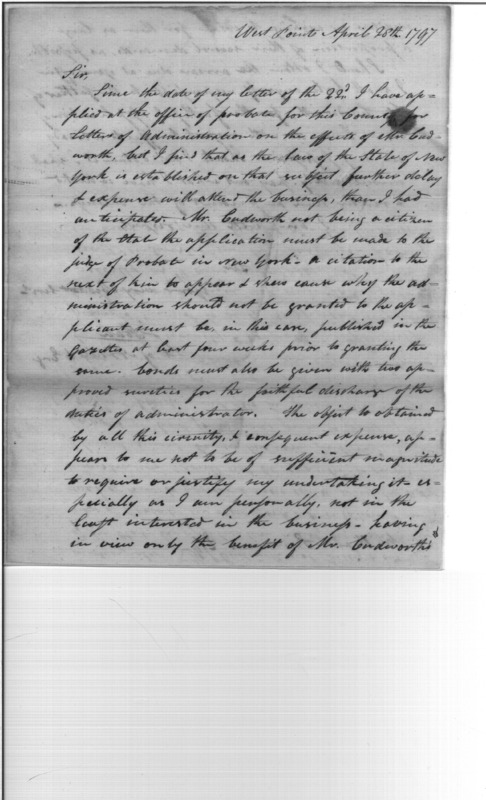 West Point April 28th. 1797
Sir,
Since the date of my letter of the 22d. I have ap-
plied at the office of probate for this County for
Letters of Administration on the effects of Mr. Cud-
worth, but I find that as the law of the State of New
York is established on that subject further delay
& expense will attend the business, than I had
anticipated. Mr. Cudworth not being a citizen
of the State the application must be made to the
judge of Probate in New York - a citation to the
next of kin to appear & shew cause why the ad-
ministration should not be granted to the ap-
plicant must be, in this case, published in the
Gazettes at least four weeks prior to granting the
same. Bonds must also be given with two ap-
proved sureties for the faithful discharge of the
duties of administrator. The object to obtained
by all this circuity, & consequent expense, ap-
pears to me not to be of sufficient magnitude
to require or justify my undertaking it - es-
pecially as I am personally, not in the
least interested in the business - having
in view only the benefit of Mr. Cudworth's